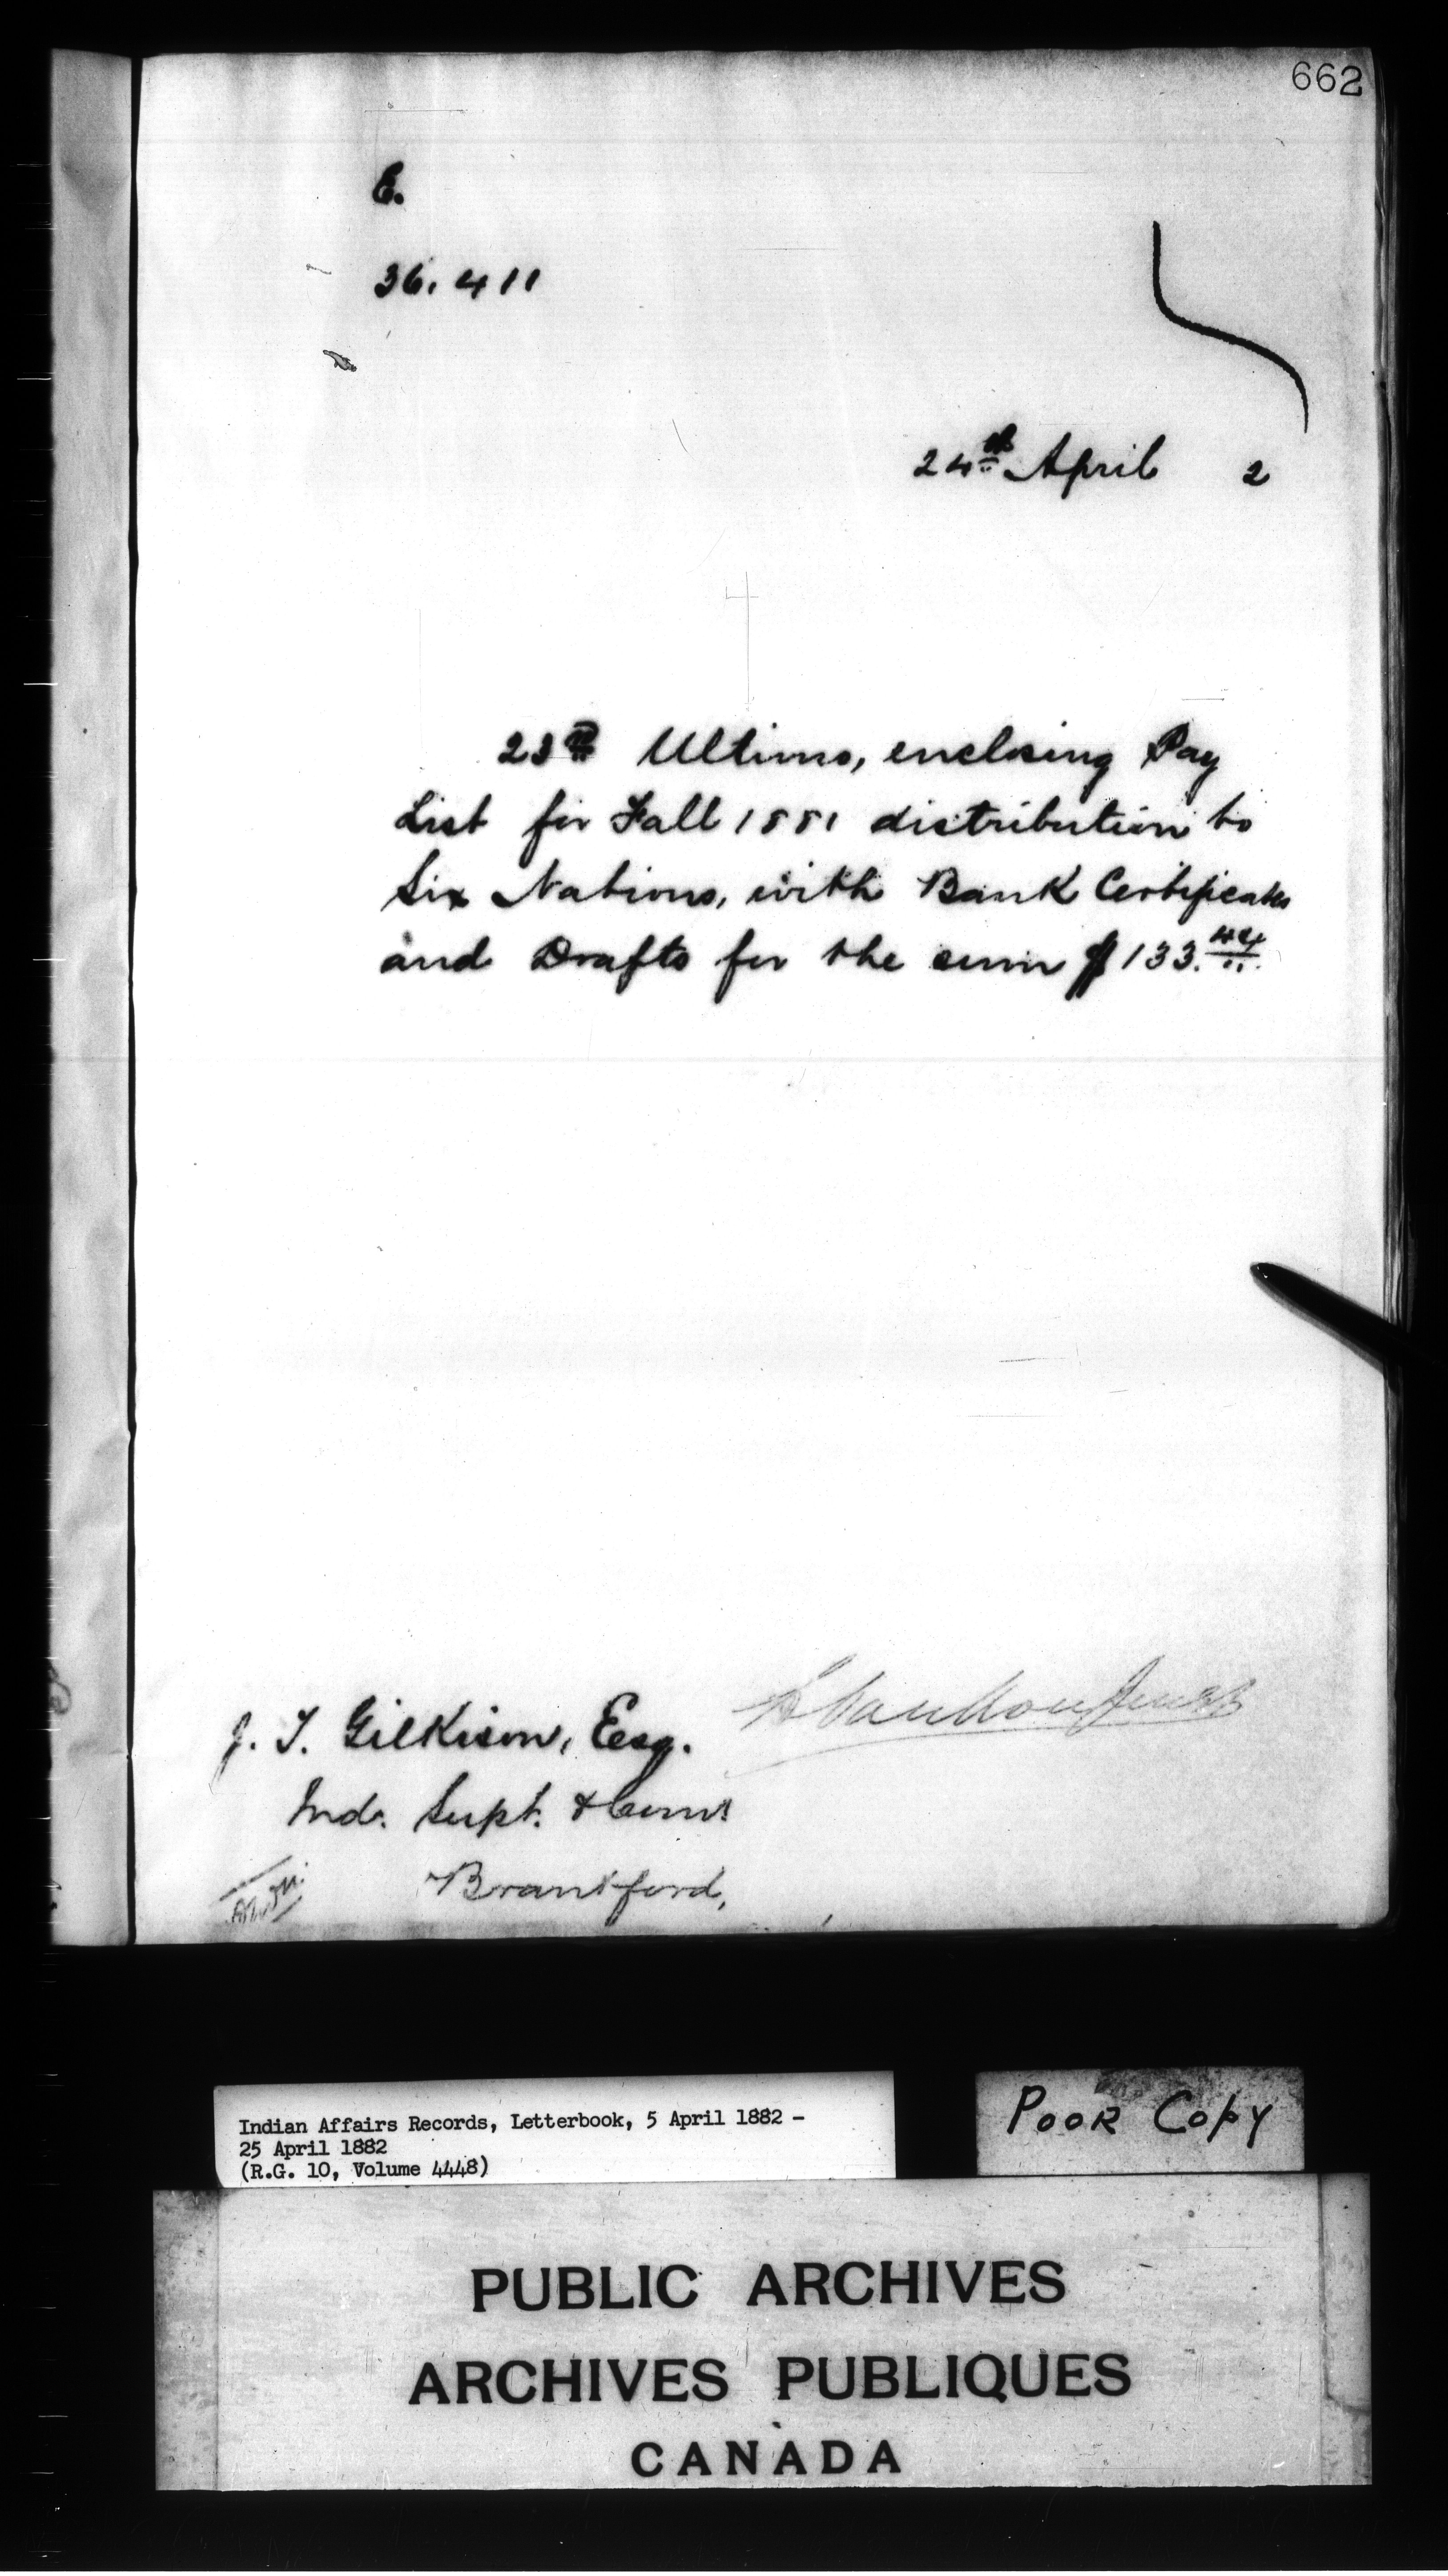 662
E.
36.411
24th April 2
23rd Ultimo, enclosing Pay
List for Fall 1881 distribution to
Six Nations, with Bank Certificates
and Drafts for the sum $133.44
L VanKoughnet
J. T. Gilkison, Esq.
Ind. Supt. & Comr
Brantford,
Indian Affairs Records, Letterbook, 5 April 1882 -
25 April 1882
(R.G. 10, Volume 4448)
POOR COPY
PUBLIC ARCHIVES
ARCHIVES PUBLIQUES
CANADA